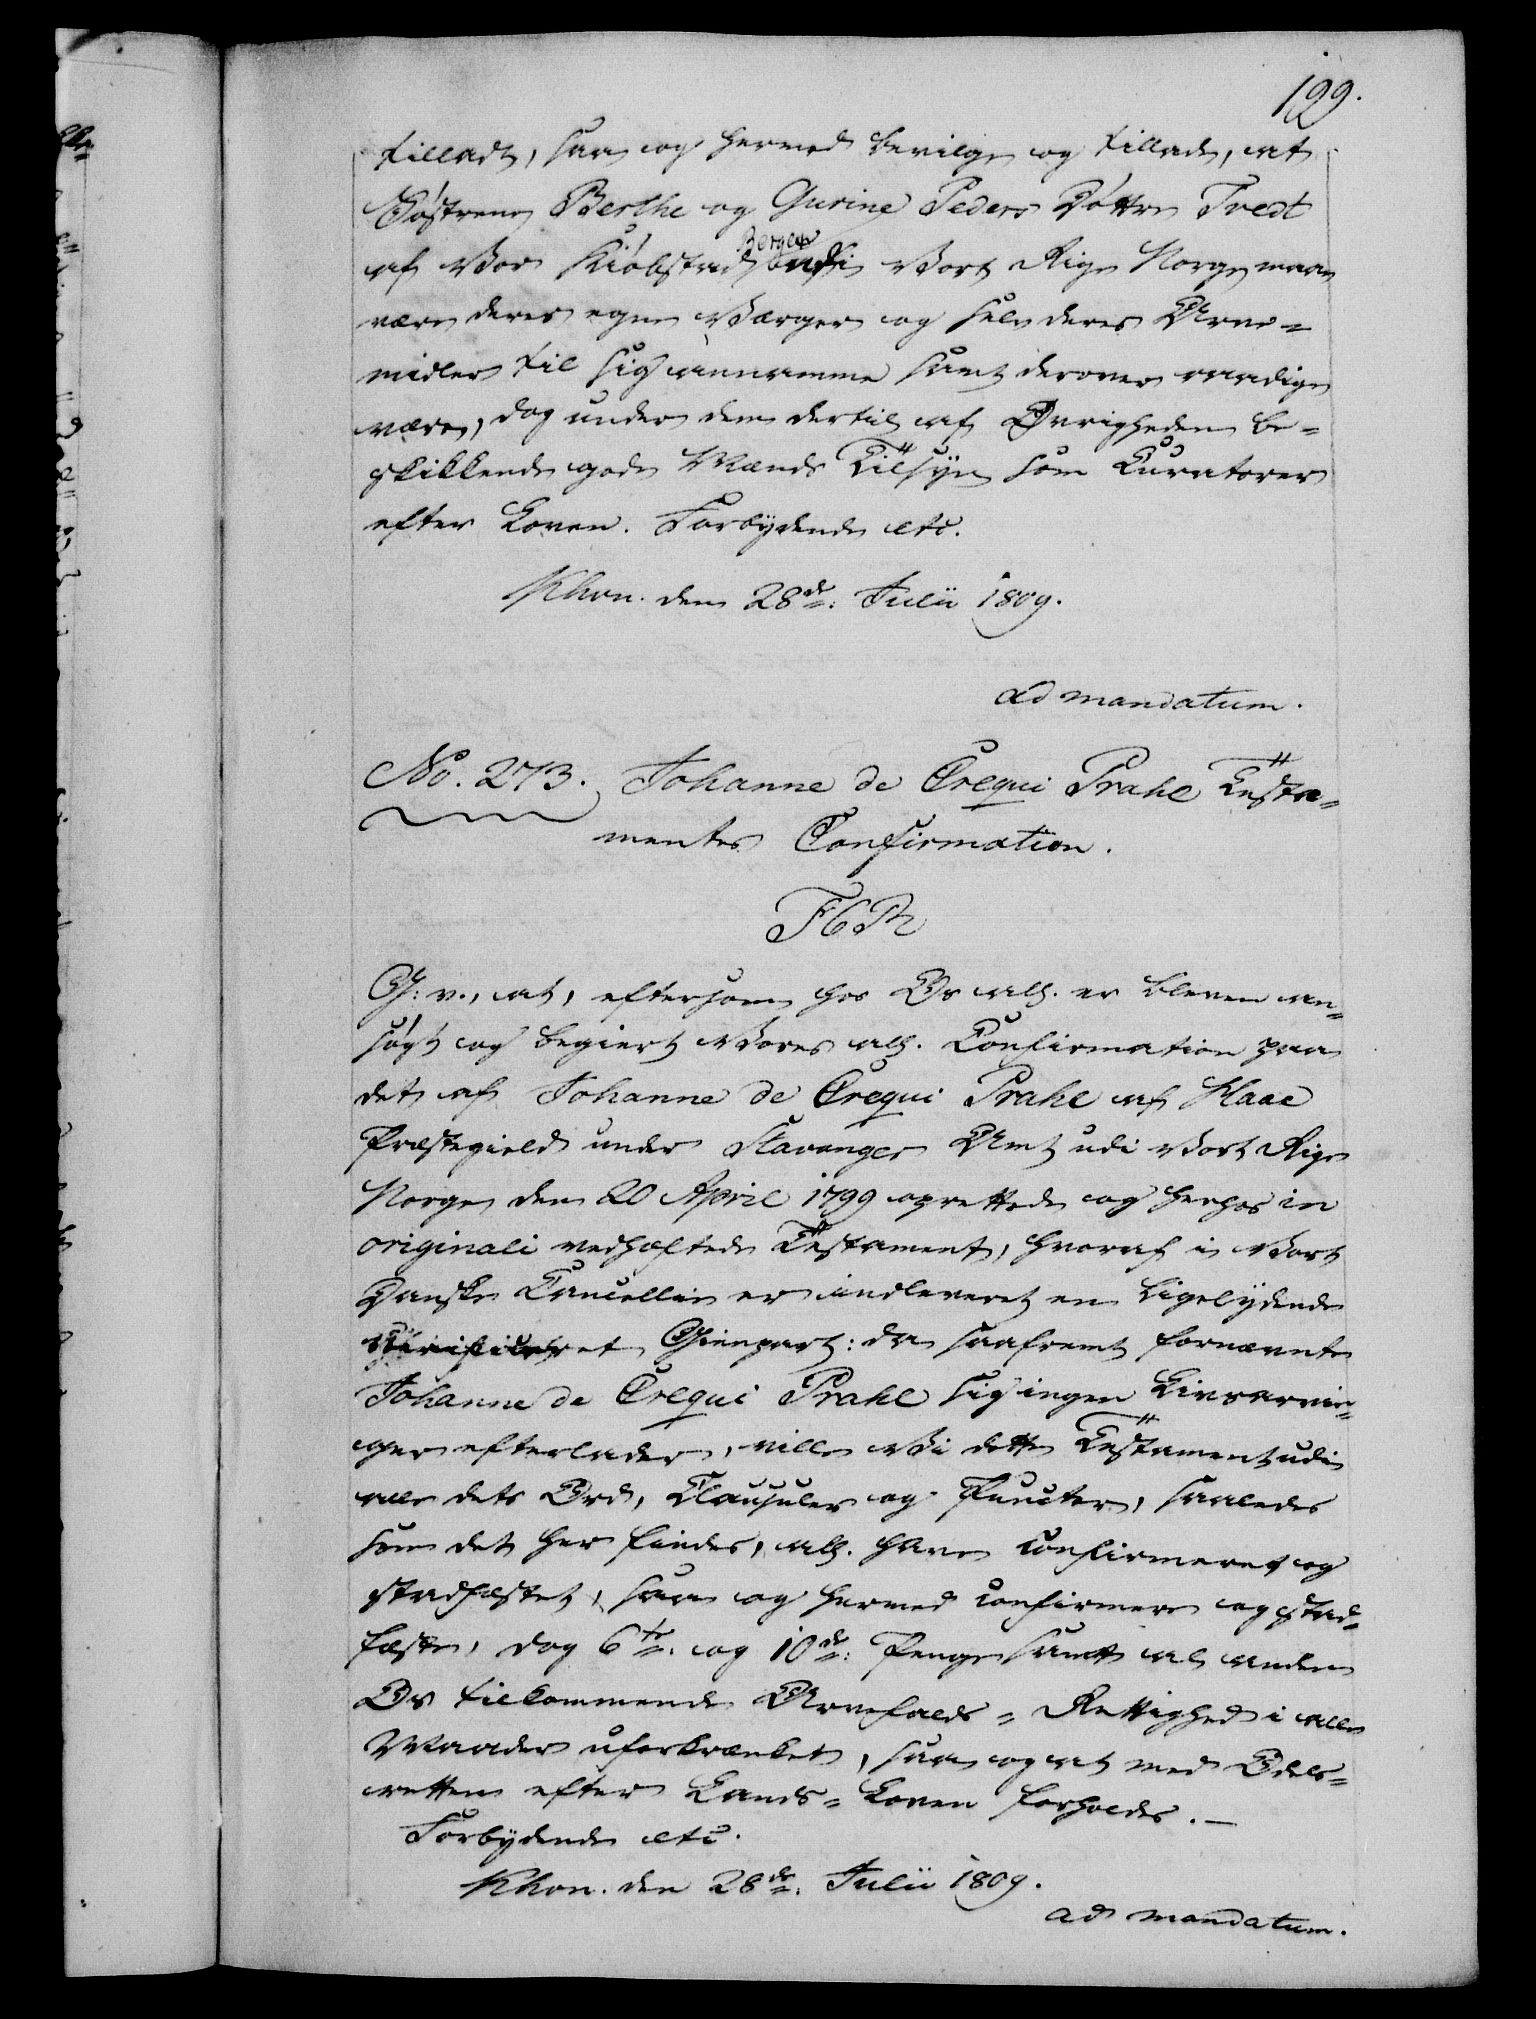 199.
tilladt, saa og hermed bevilge og tillade, at
Søstrene Berthe og Gurine Peders Døttre Tvedt
af Vor Kiøbstad Bergen udi Vort Rige Norge maae
være deres egne Værger og selv deres Arve-
midler til sig annamme samt derover raadige
være, dog under den dertil af Øvrigheden be-
skikkende gode Mænds Tilsyn som Curatorer
efter Loven. Forbydende etc.
Khvn. den 28de Julii 1809.
ad mandatum.
No. 273. Johanne de Crequi Prahl Testa-
mentes Confirmation.
F6R
G: v., at, eftersom hos Os all. er bleven an-
søgt og begiert Vores all. Confirmation paa
det af Johanne de Crequi Prahl af Haae
Præstegield under Stavanger Amt udi Vort Rige
Norge den 20 April 1799 oprettede og herhos in
originali vedhæftede Testament, hvoraf i Vort
Danske Cancellie er indleveret en ligelydende
verificeret Gienpart: da saafremt fornævnte
Johanne de Crequi Prahl sig ingen Livsarvin-
ger efterlader, ville Vi dette Testament udi
alle dets Ord, Clausuler og Puncter, saaledes
som det her findes, all. have confirmeret og
stadfæstet, saa og hermed confirmere og stad-
fæste, dog 6te og 10de Penge samt al anden
Os tilkommende Arvefalds-Rettighed i alle
Maader uforkrænket, saa og at med Odels-
retten efter Lands-Loven forholdes. —
Forbydende etc.
Khvn. den 28de Julii 1809.
ad mandatum.